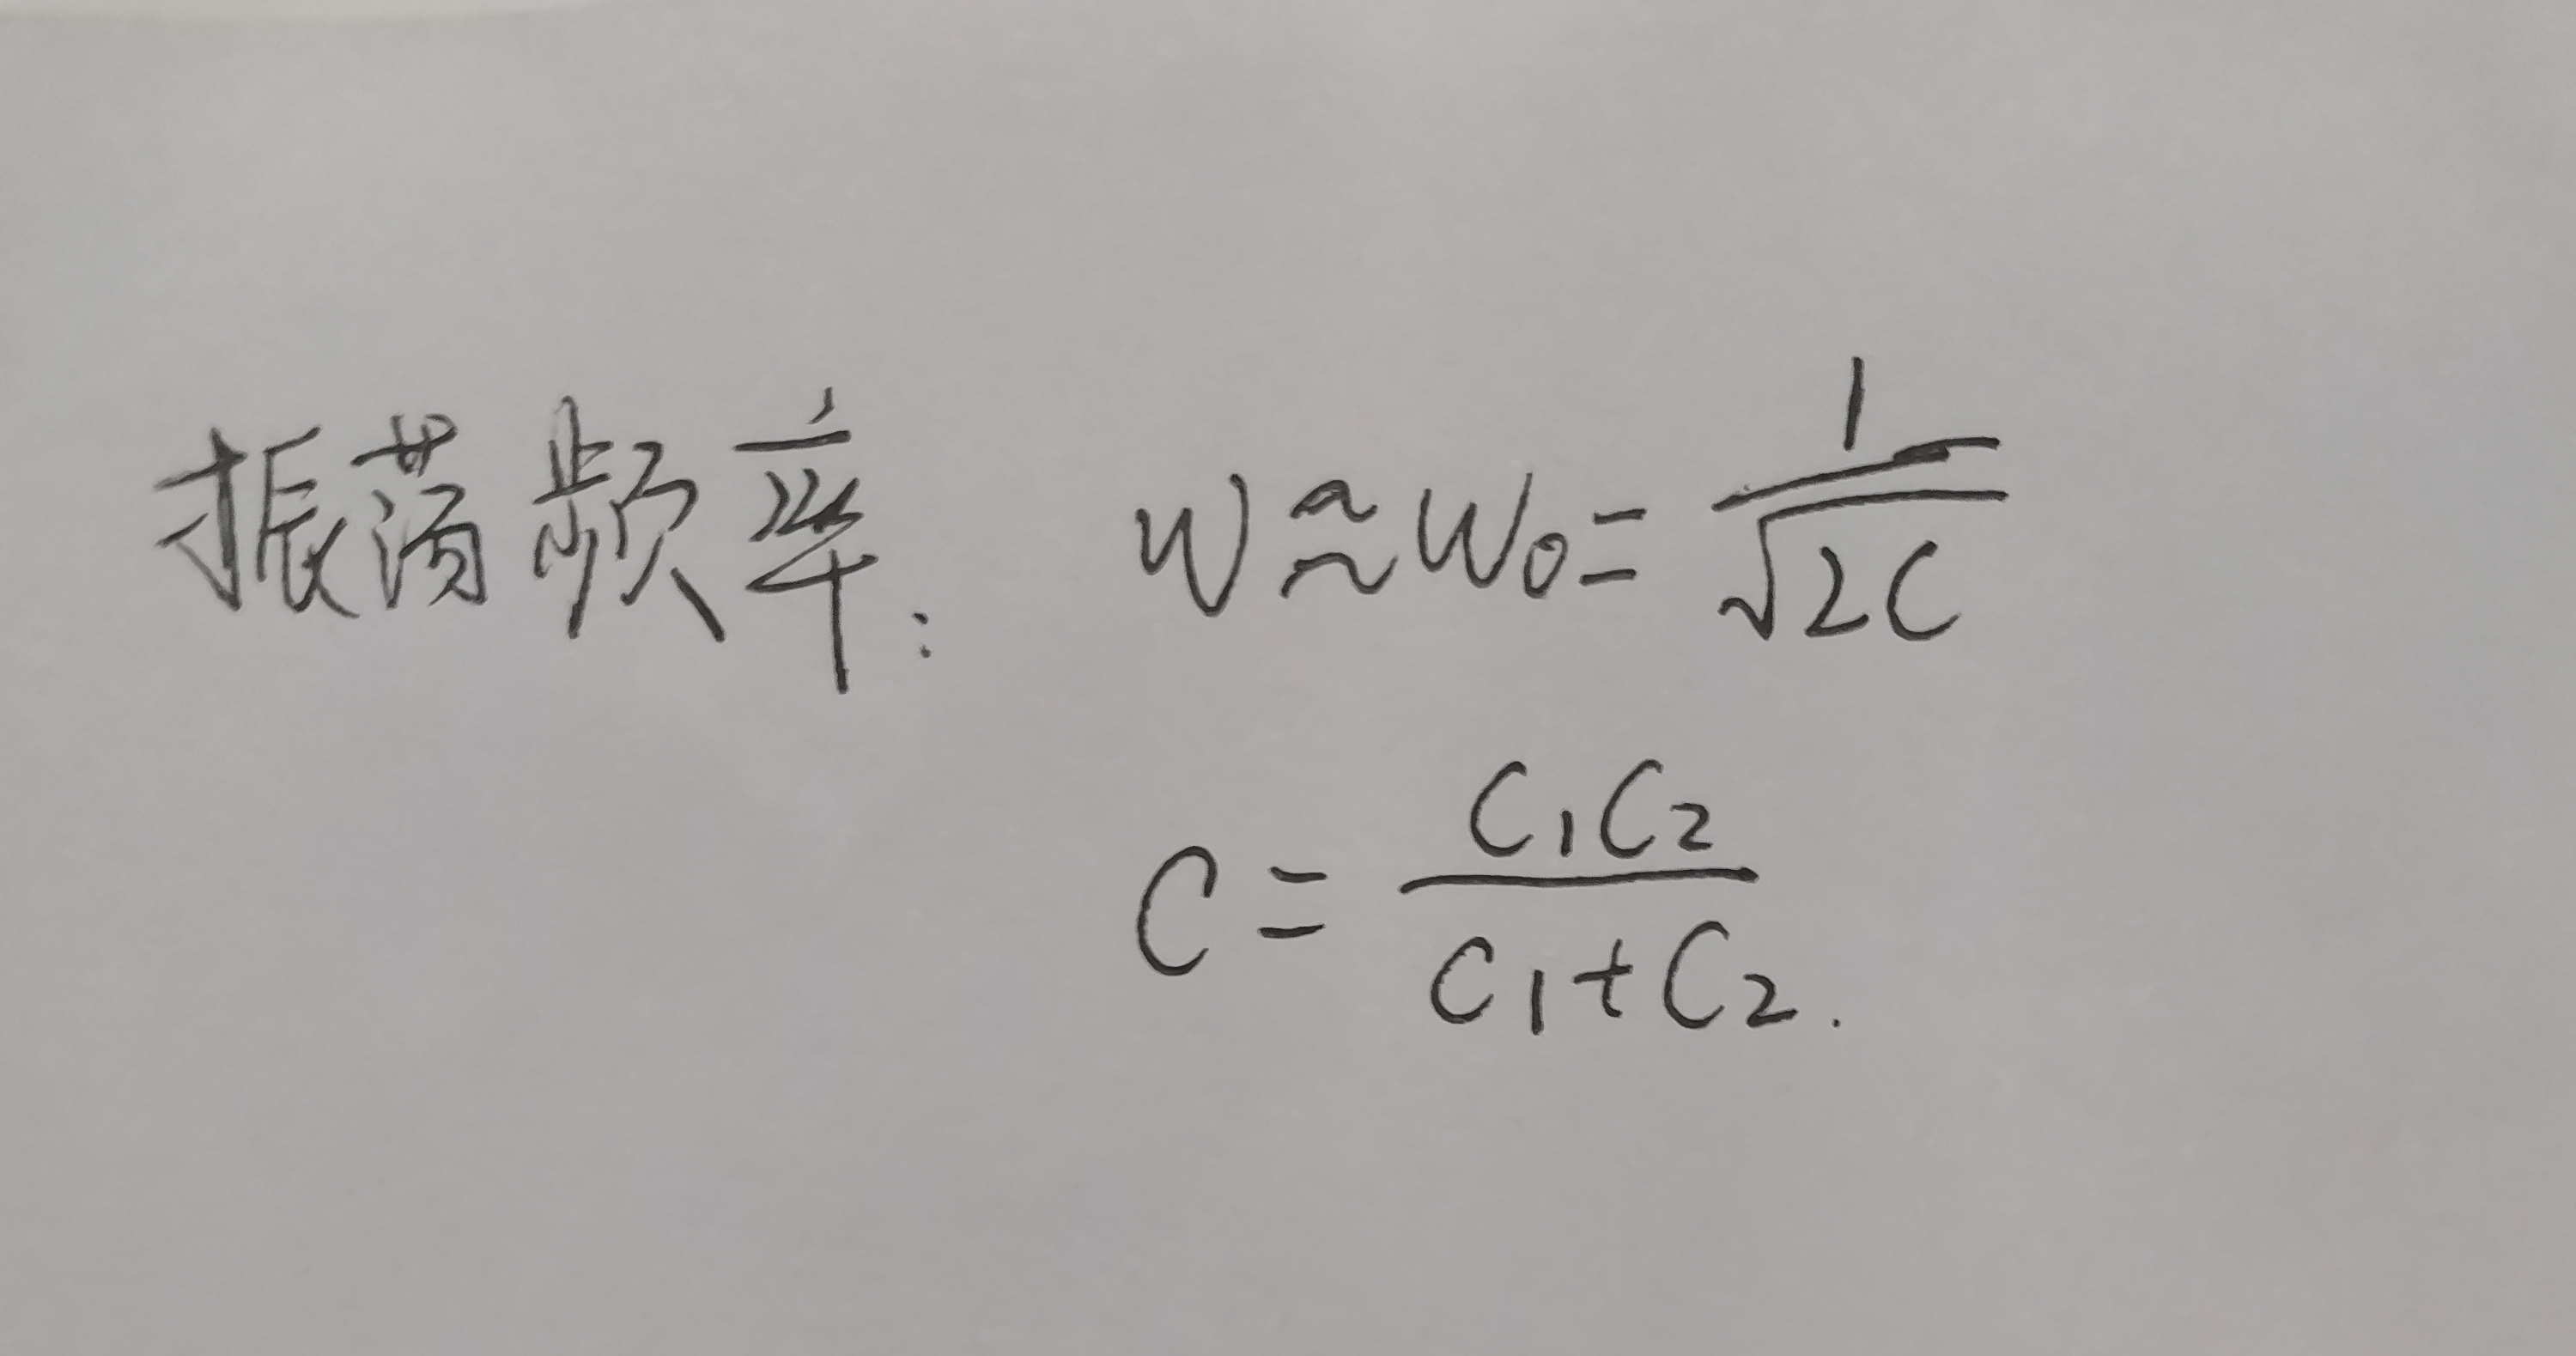 振荡频率: W≈W₀=1/√2C
C=C₁C₂/C₁+C₂.